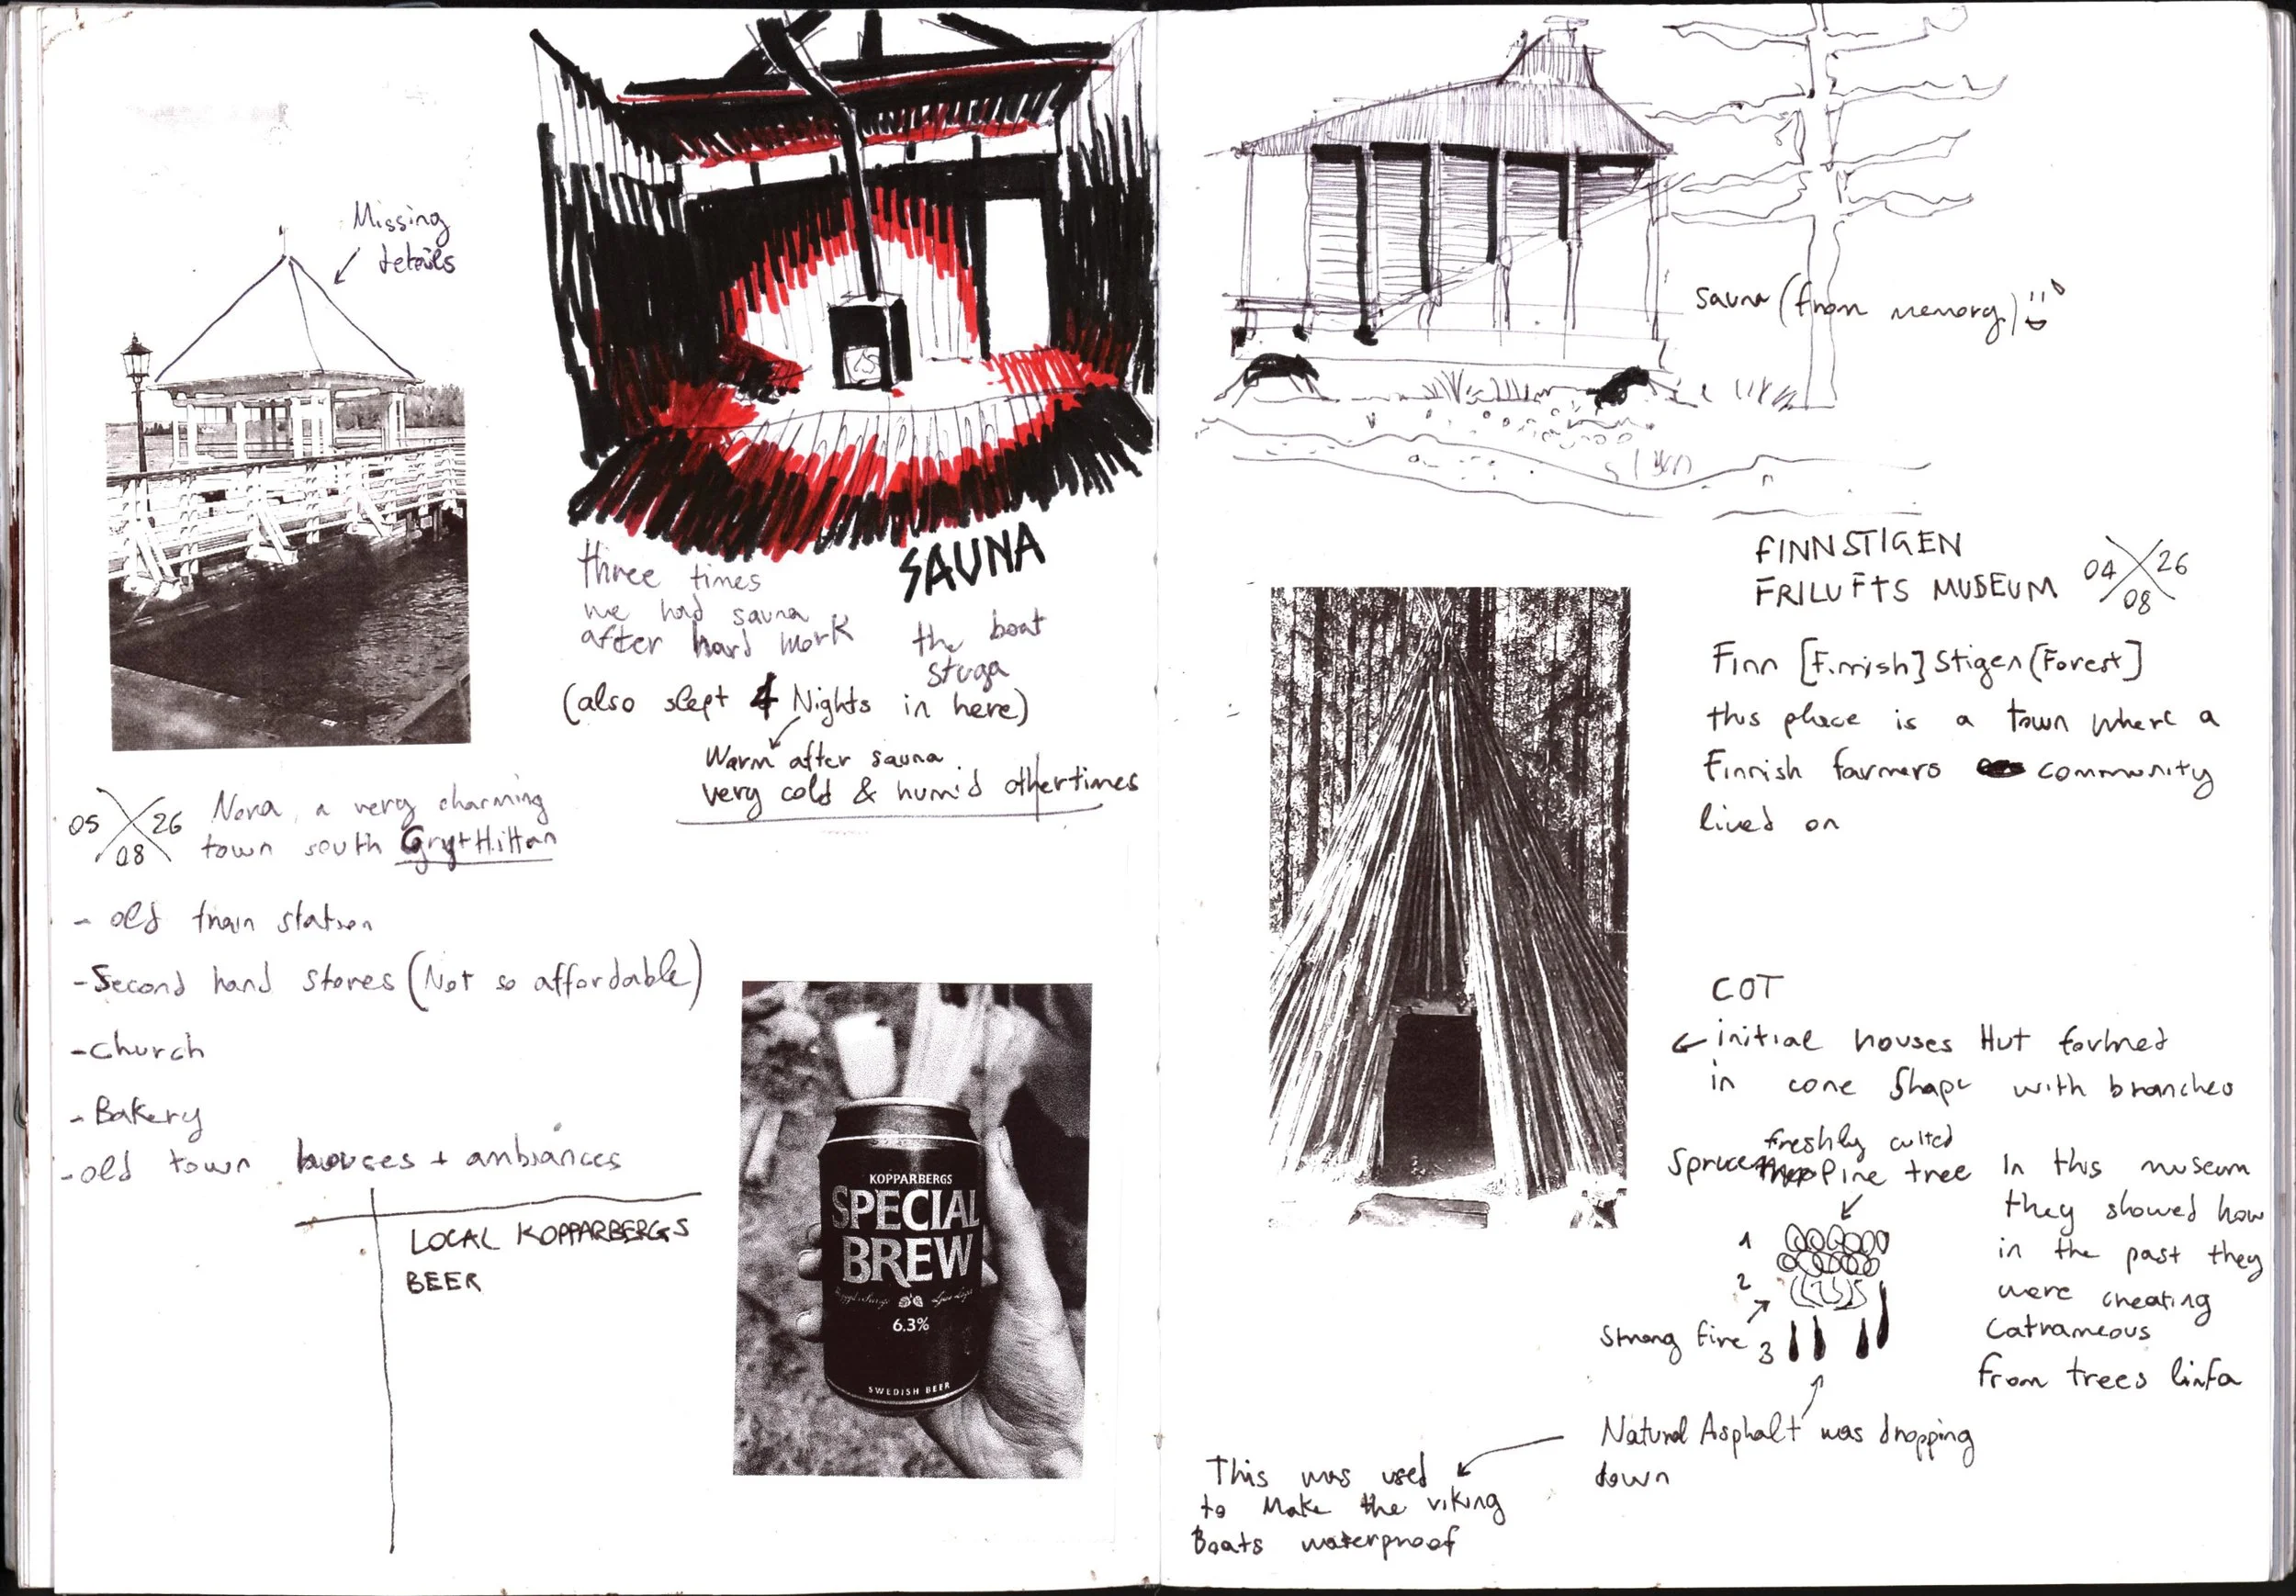 Missing
details
SAUNA
three times
we had sauna
after hard work
the boat
stuga
(also slept 4 Nights in here)
Warm after sauna
very cold & humid other times
05 26
08
Nora, a very charming
town south GrytHittan
- old train station
- Second hand stores (Not so affordable)
- church
- Bakery
- old town houses + ambiances
LOCAL KOPPARBERGS
BEER
KOPPARBERGS
SPECIAL
BREW
6.3%
SWEDISH BEER
sauna (from memory)
FINNSTIGEN
FRILUFTS MUSEUM
04 26
08
Finn [Finnish] Stigen (Forest)
this place is a town where a
Finnish farmers community
lived on
COT
initial houses Hut formed
in cone shape with branches
freshly cutted
Spruce Pine tree
1
2
Strong fire
3
In this museum
they showed how
in the past they
were creating
Catrameous
from trees linfa
Natural Asphalt was dropping
down
This was used
to Make the viking
Boats waterproof